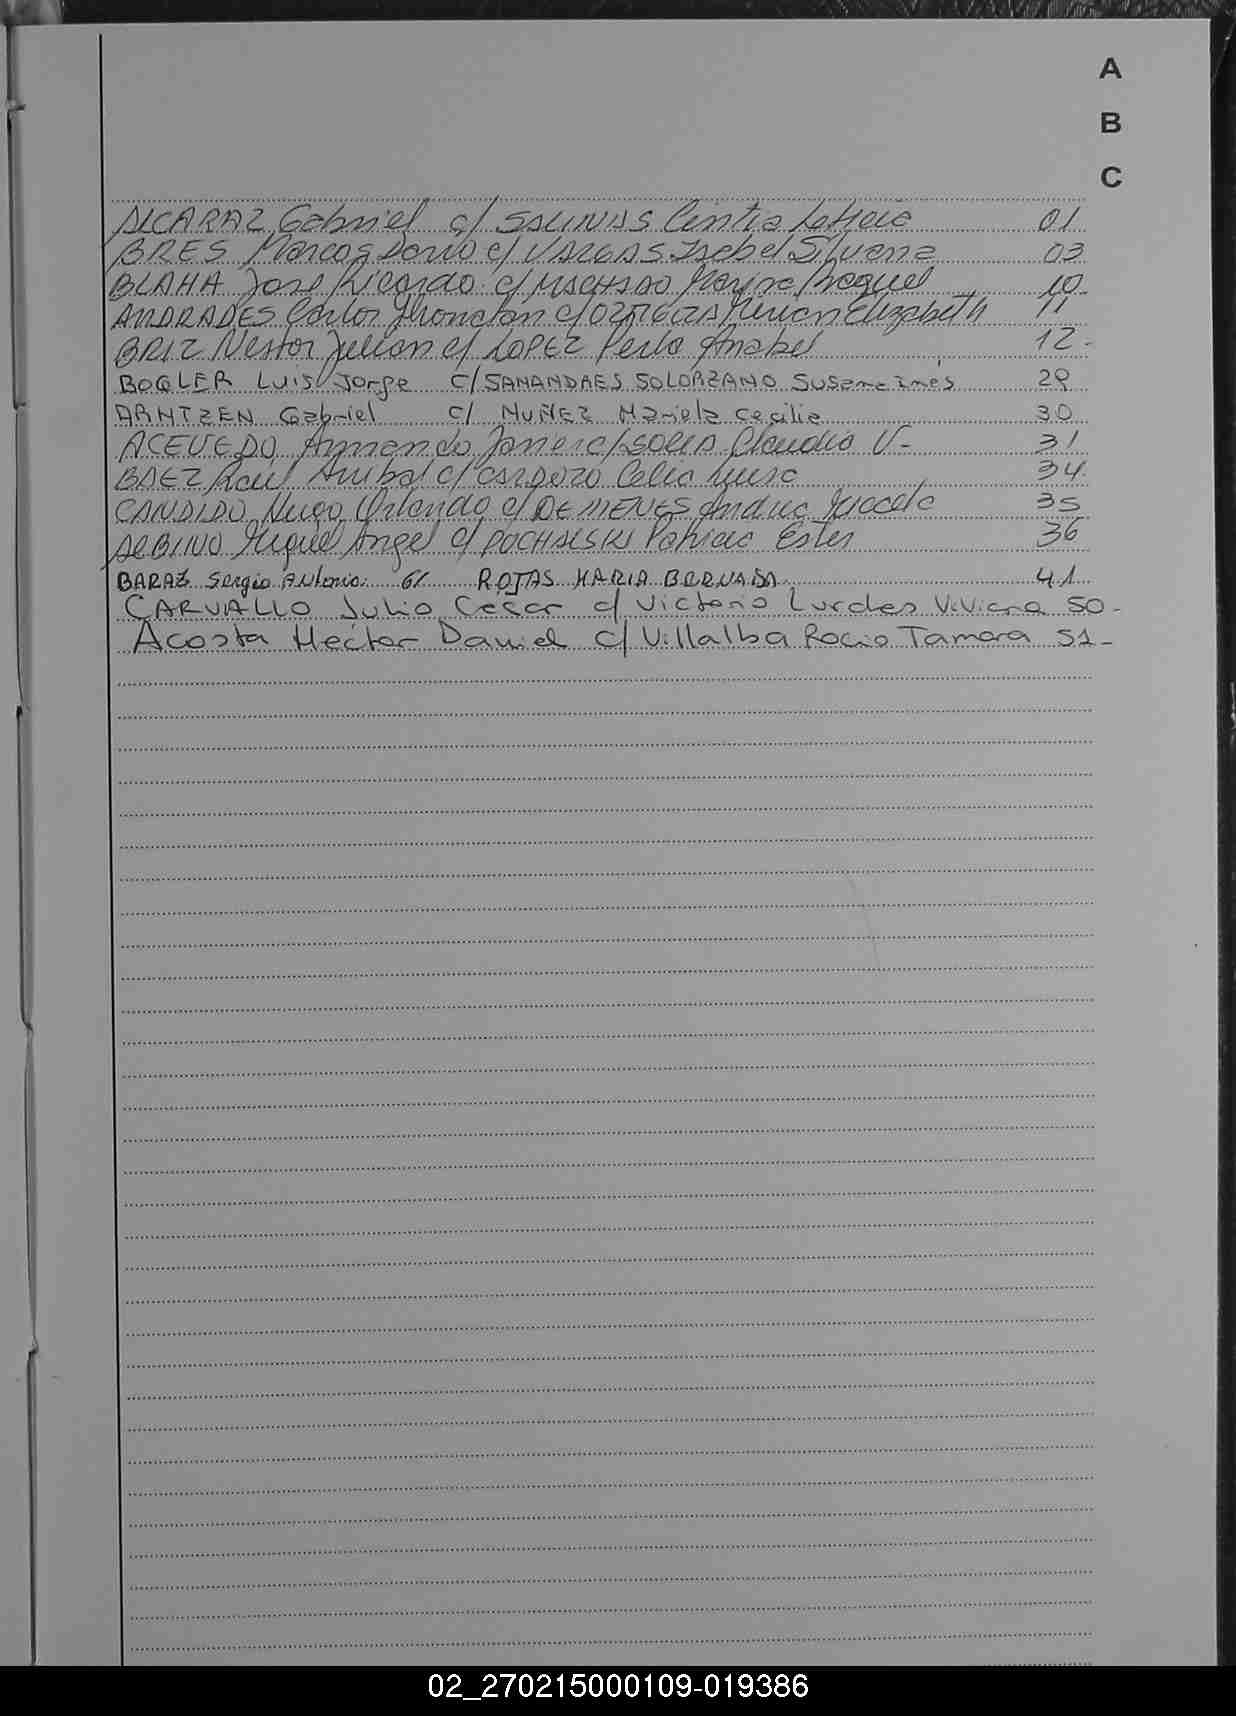 A
B
C
ALCARAZ Gabriel c/ SALINAS Cintia Leticia 01
BRES Marcos Dario c/ VARGAS Isabel Silvana 03
BLAHA José Ricardo c/ MACHADO Marina Raquel 10
ANDRADES Carlos Jhonatan c/ ORTEGA Mirian Elizabeth 11
BRIZ Nestor Julian c/ LOPEZ Perla Anabel 12-
BOGLER LUIS Jorge C/ SAMANDAES SOLORZANO Susana Inés 29
ARNTZEN Gabriel c/ MUÑEZ Mariela Cecilia 30
ACEVEDO Armando Javier c/ SOSA Claudia V- 31
BAEZ Raul Anibal c/ CARDOZO Celia Luisa 34
CANDIDO Hugo Orlando c/ DE MENES Andrea 35
ALBINO Miguel Angel c/ POCHALSKI Patricia Ester 36
BARAZ Sergio Antonio c/ ROJAS MARIA BERNADA 41
CARVALLO Julio Cesar c/ Victorio Lurdes Viviana 50-
Acosta Hector Daniel c/ Villalba Rocio Tamara 51-
02_270215000109-019386